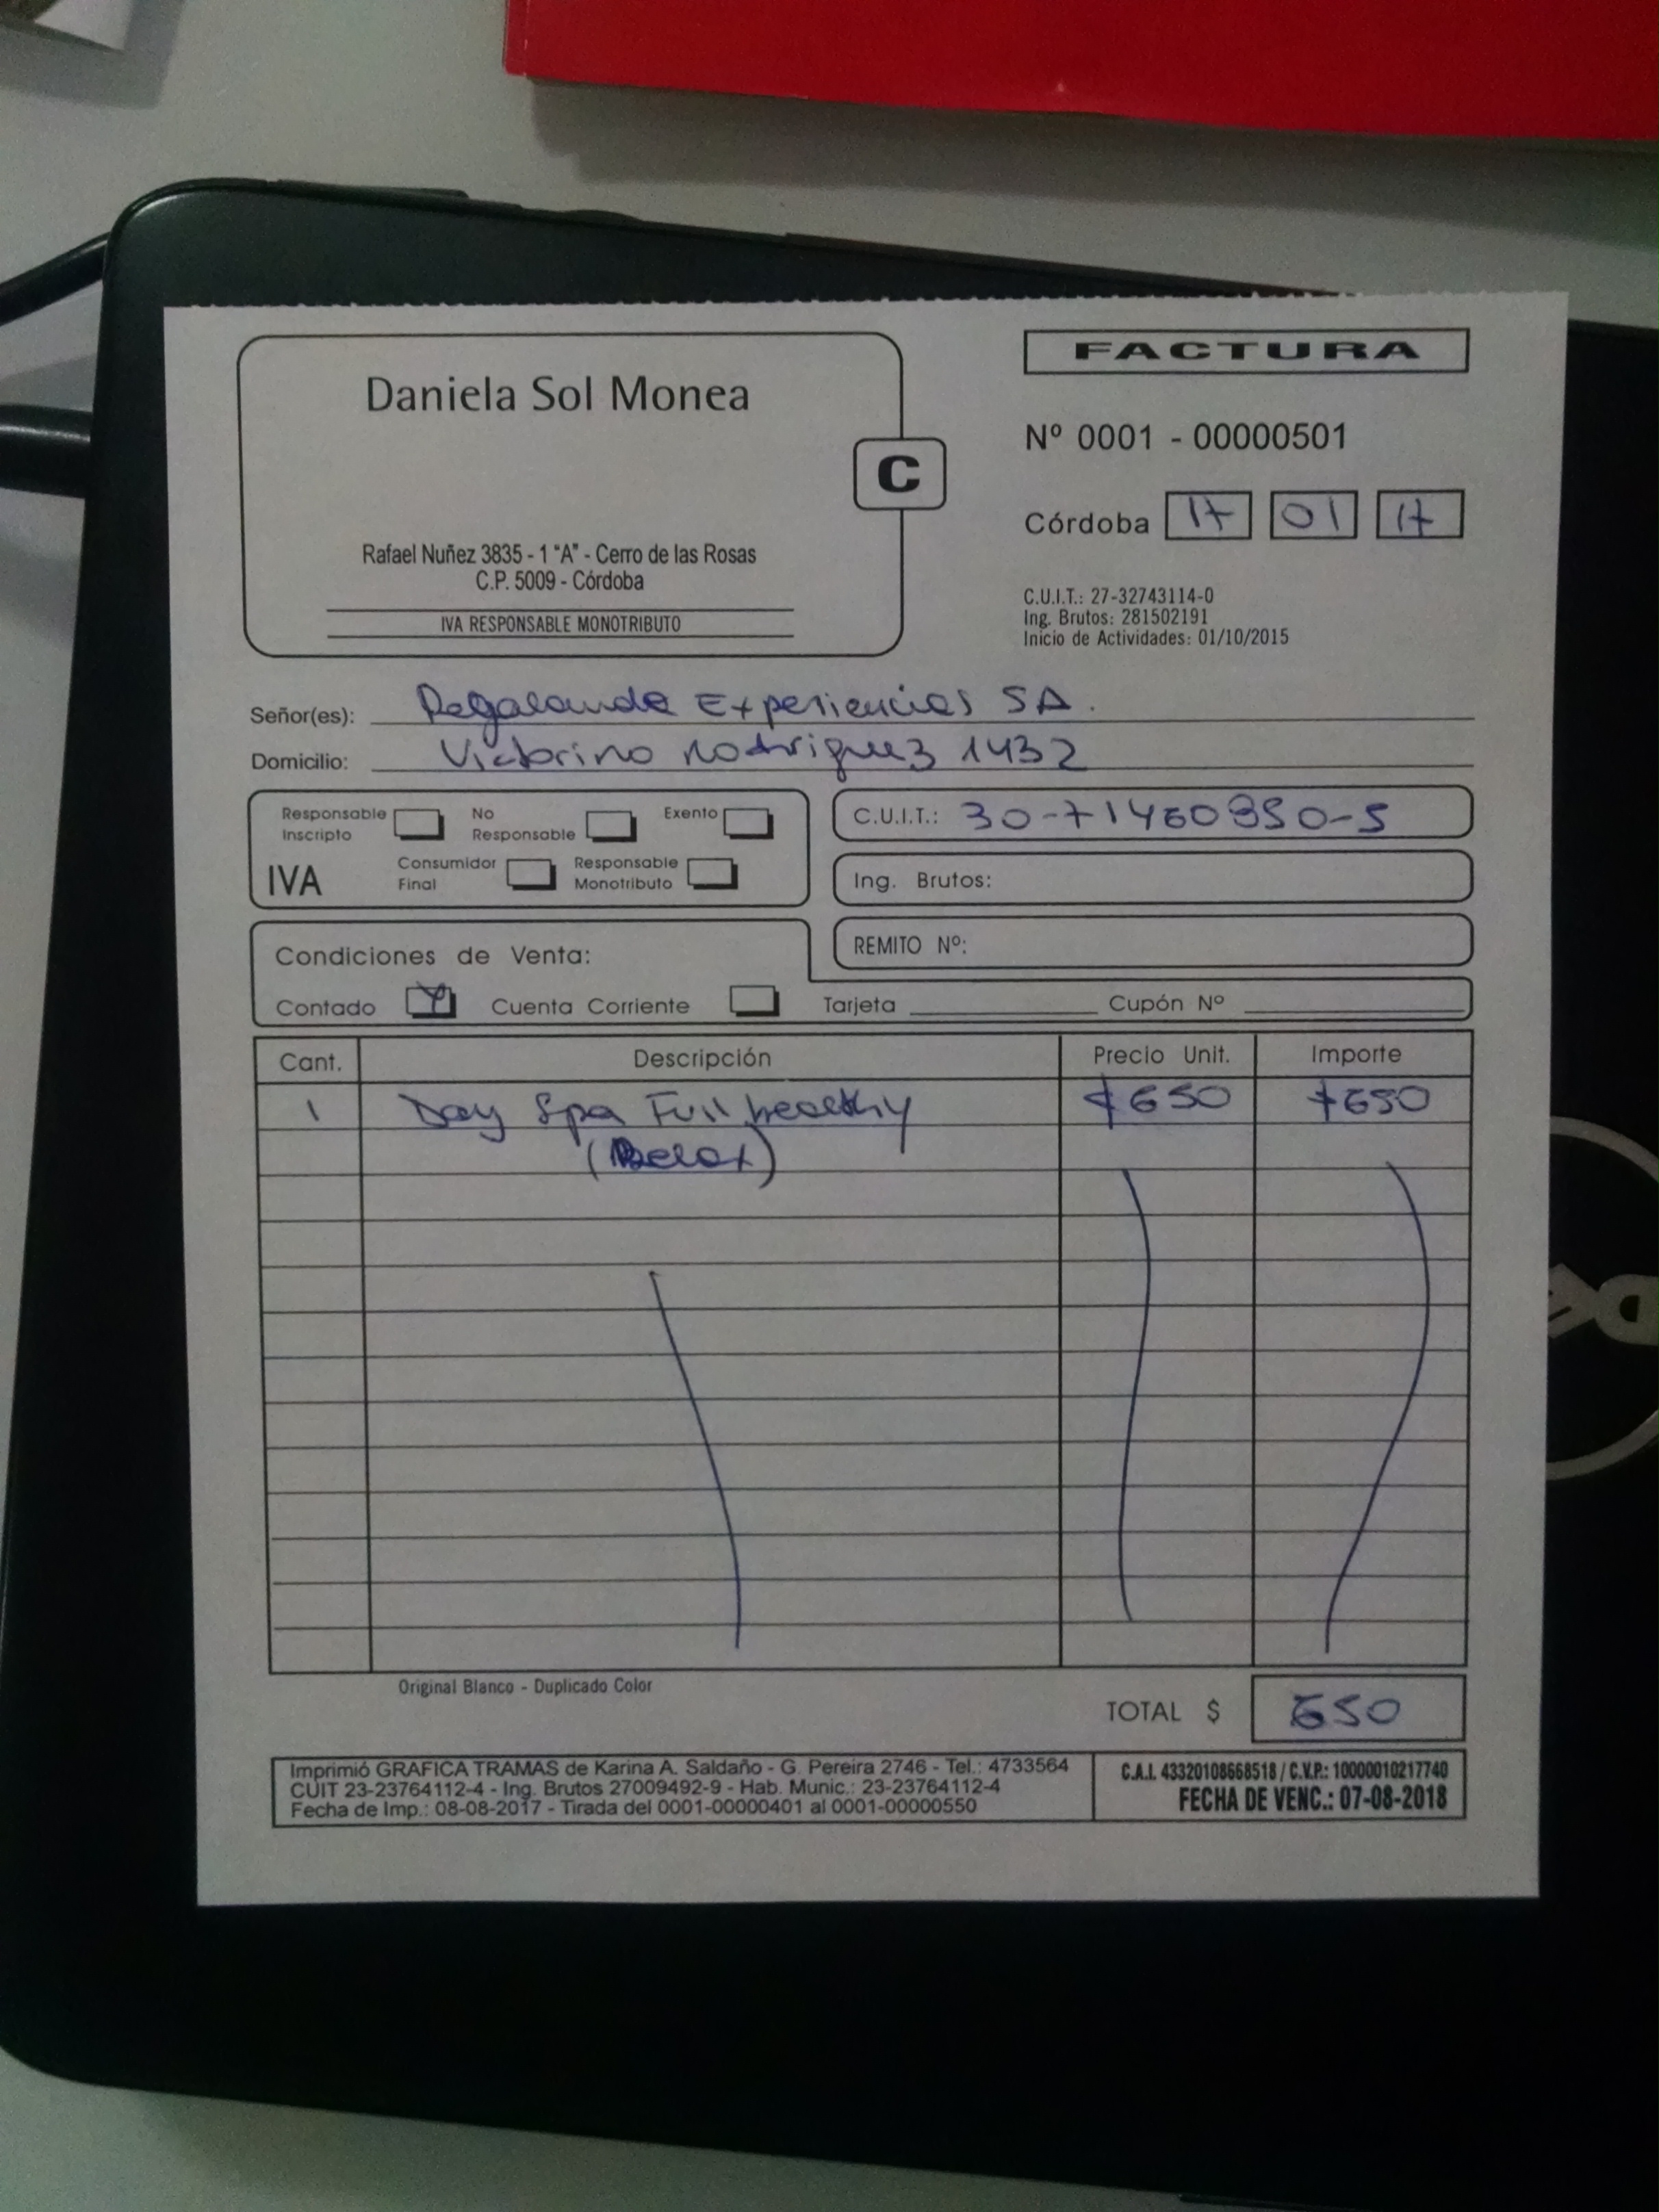 FACTURA
Daniela Sol Monea
C
Nº 0001 - 00000501
Córdoba 17 01 17
Rafael Nuñez 3835 - 1 "A" - Cerro de las Rosas
C.P. 5009 - Córdoba
IVA RESPONSABLE MONOTRIBUTO
C.U.I.T.: 27-32743114-0
Ing. Brutos: 281502191
Inicio de Actividades: 01/10/2015
Señor(es): Regalando Experiencias SA.
Domicilio: Victorino Rodriguez 1432
Responsable Inscripto No Responsable Exento
IVA Consumidor Final Responsable Monotributo
C.U.I.T.: 30-71460950-5
Ing. Brutos:
REMITO Nº:
Condiciones de Venta:
Contado Cuenta Corriente Tarjeta Cupón Nº
Cant. Descripción Precio Unit. Importe
1 Day Spa Full healthy $650 $650
(Relax)
Original Blanco - Duplicado Color
TOTAL $ 650
Imprimió GRAFICA TRAMAS de Karina A. Saldaño - G. Pereira 2746 - Tel.: 4733564
CUIT 23-23764112-4 - Ing. Brutos 27009492-9 - Hab. Munic.: 23-23764112-4
Fecha de Imp.: 08-08-2017 - Tirada del 0001-00000401 al 0001-00000550
C.A.I. 43320108668518 / C.V.P.: 10000010217740
FECHA DE VENC.: 07-08-2018